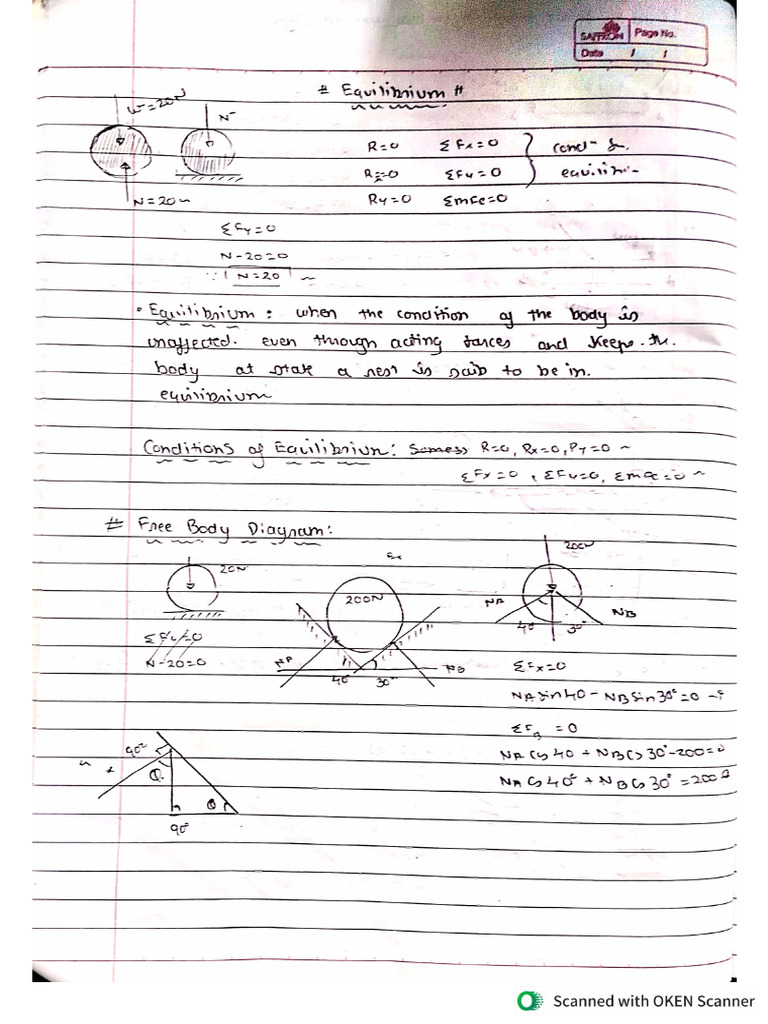 SAFFRON Page No.
Date / /
# Equilibrium #
W=20N
N
R=0 ΣFx=0
Rx=0 ΣFy=0
equilibri-
N=20
Ry=0 Σmfc=0
ΣFy=0
N-20=0
∵ N=20
• Equilibrium: when the condition of the body is
unaffected. even through acting forces and keeps the.
body at state a rest is said to be in.
equilibrium
Conditions of Equilibrium: R=0, Rx=0, Ry=0 ~
ΣFx=0, ΣFy=0, Σmfc=0 ~
# Free Body Diagram:
20N
200N
200N
NA NB
40° 30°
ΣFy=0
N-20=0
NA NB
40° 30°
ΣFx=0
NA sin40 - NB sin30°=0
ΣFy = 0
NA Cos 40 + NB Cos 30° - 200=0
NA Cos 40° + NB Cos 30° = 200
90°
θ
θ
90°
Scanned with OKEN Scanner